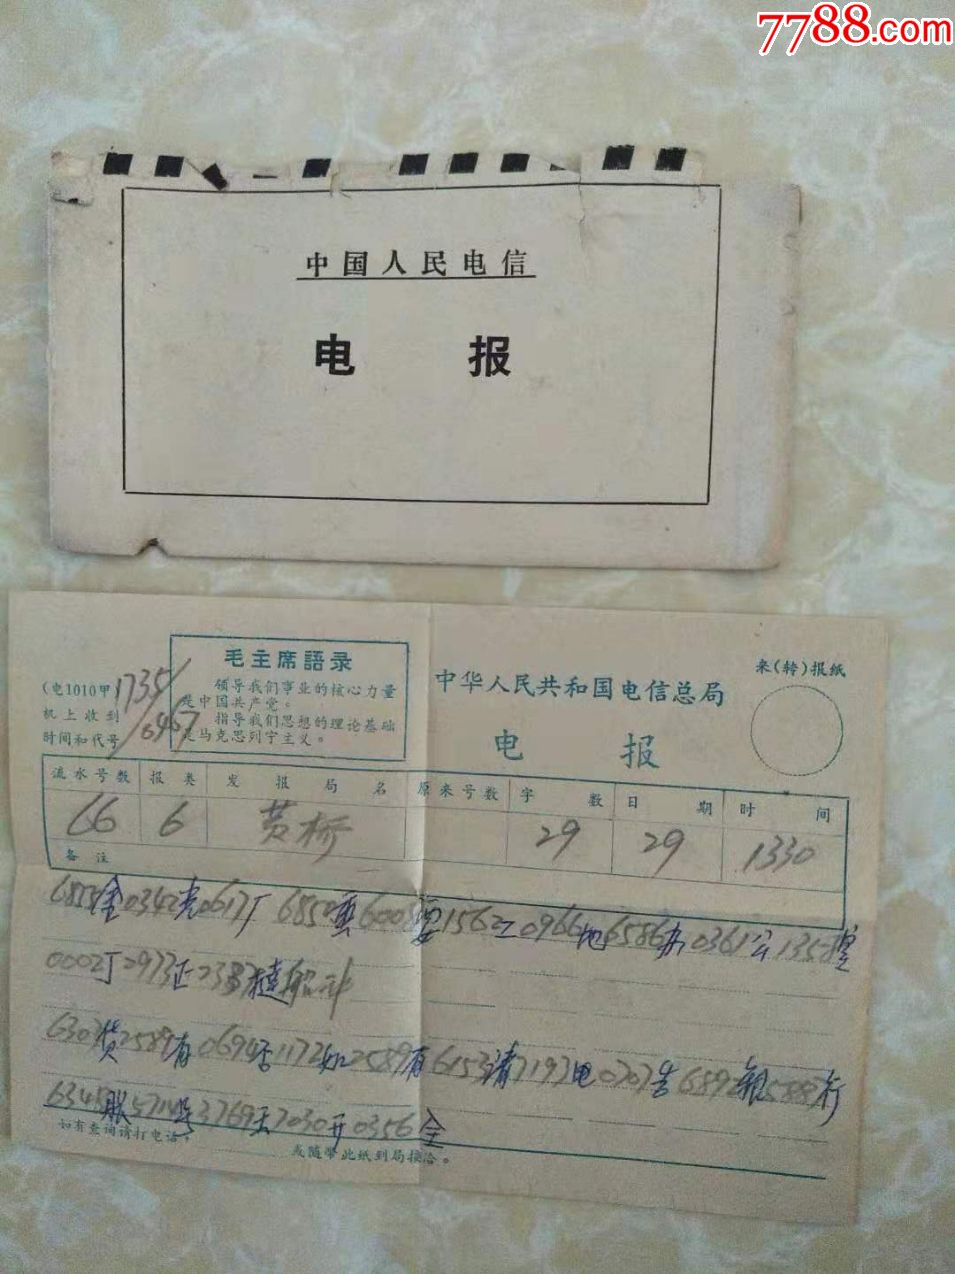 7788.com
中国人民电信
电 报
毛主席語录
领导我们事业的核心力量
是中国共产党。
指导我们思想的理论基础
是马克思列宁主义。
(电1010甲)
机上收到
时间和代号
1735
中华人民共和国电信总局
电 报
来(转)报纸
流水号数 报类 发报局名 原来号数 字数 日期 时间
66 6 黄桥 29 29 1330
备注
金0342 0617厂 1562工0966地6586办0361公
0002丁2973
6303货2589有0694否1172如2589有6153请7193电0707告6892银 行
号 7030开0356全
如有查询请打电话。
或随带此纸到局接洽。